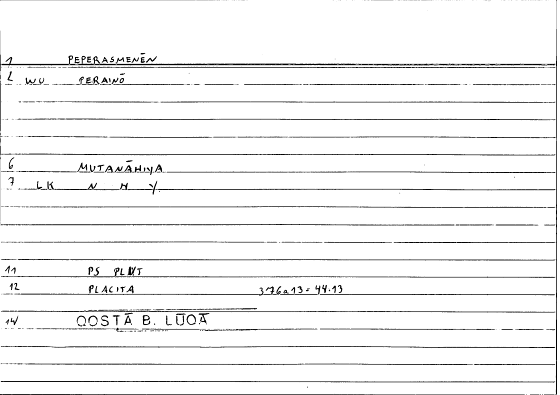 1 PEPERASMENĒN
2 WU PERAINŌ
6 MUTANĀHIYA
7 LK N H Y
11 PS PLAT
12 PLACITA 376a13 = 44.13
14 QOSTĀ B. LŪQĀ